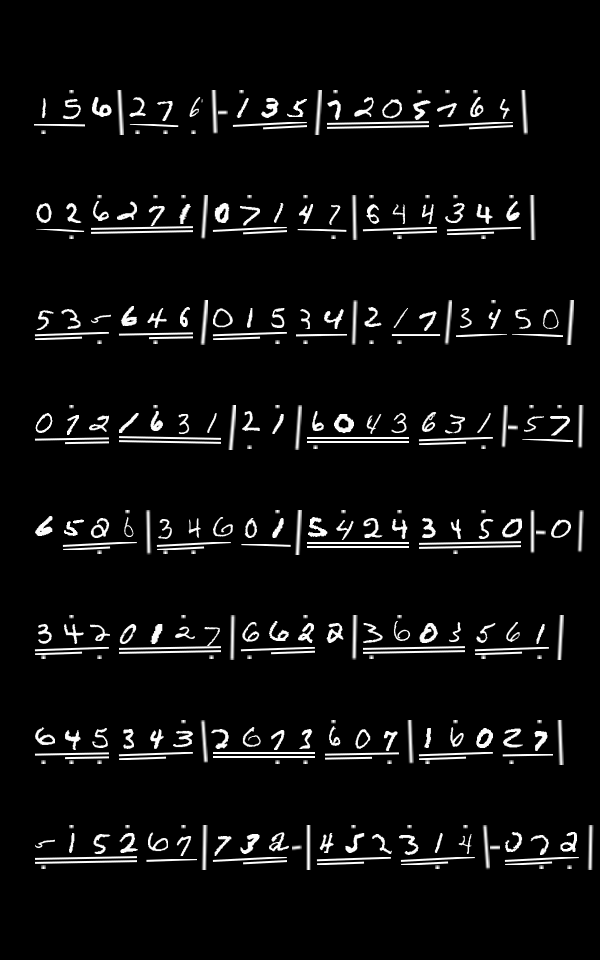 1 5 6 | 2 7 6 | - 1 3 5 | 7 2 0 5 7 6 4 |
0 2 6 2 7 1 | 0 7 1 4 7 | 6 4 4 3 4 6 |
5 3 - 6 4 6 | 0 1 5 3 4 | 2 1 7 | 3 4 5 0 |
0 7 2 1 6 3 1 | 2 1 | 6 0 4 3 6 3 1 | - 5 7 |
6 5 2 6 | 3 4 6 0 1 | 5 4 2 4 3 4 5 0 | - 0 |
3 4 2 0 1 2 7 | 6 6 2 2 | 3 6 0 3 5 6 1 |
6 4 5 3 4 3 | 2 6 7 3 6 0 7 | 1 6 0 2 7 |
- 1 5 2 6 7 | 7 3 2 - | 4 5 2 3 1 4 | - 0 7 2 |